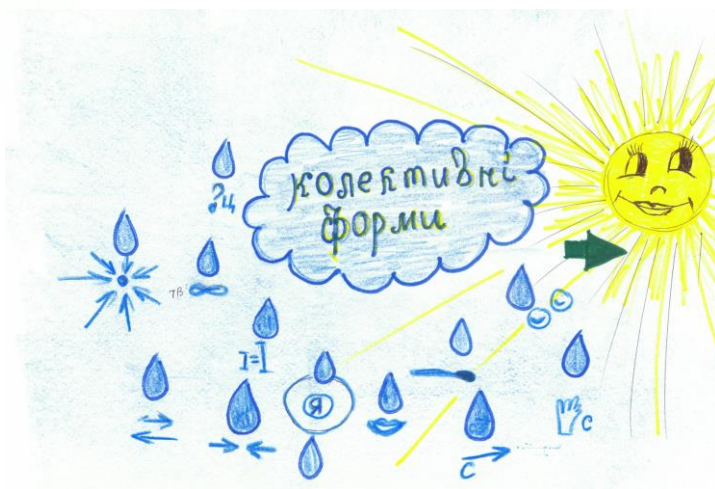 колективні
форми
?ц
тв
І=І
Я
с
с